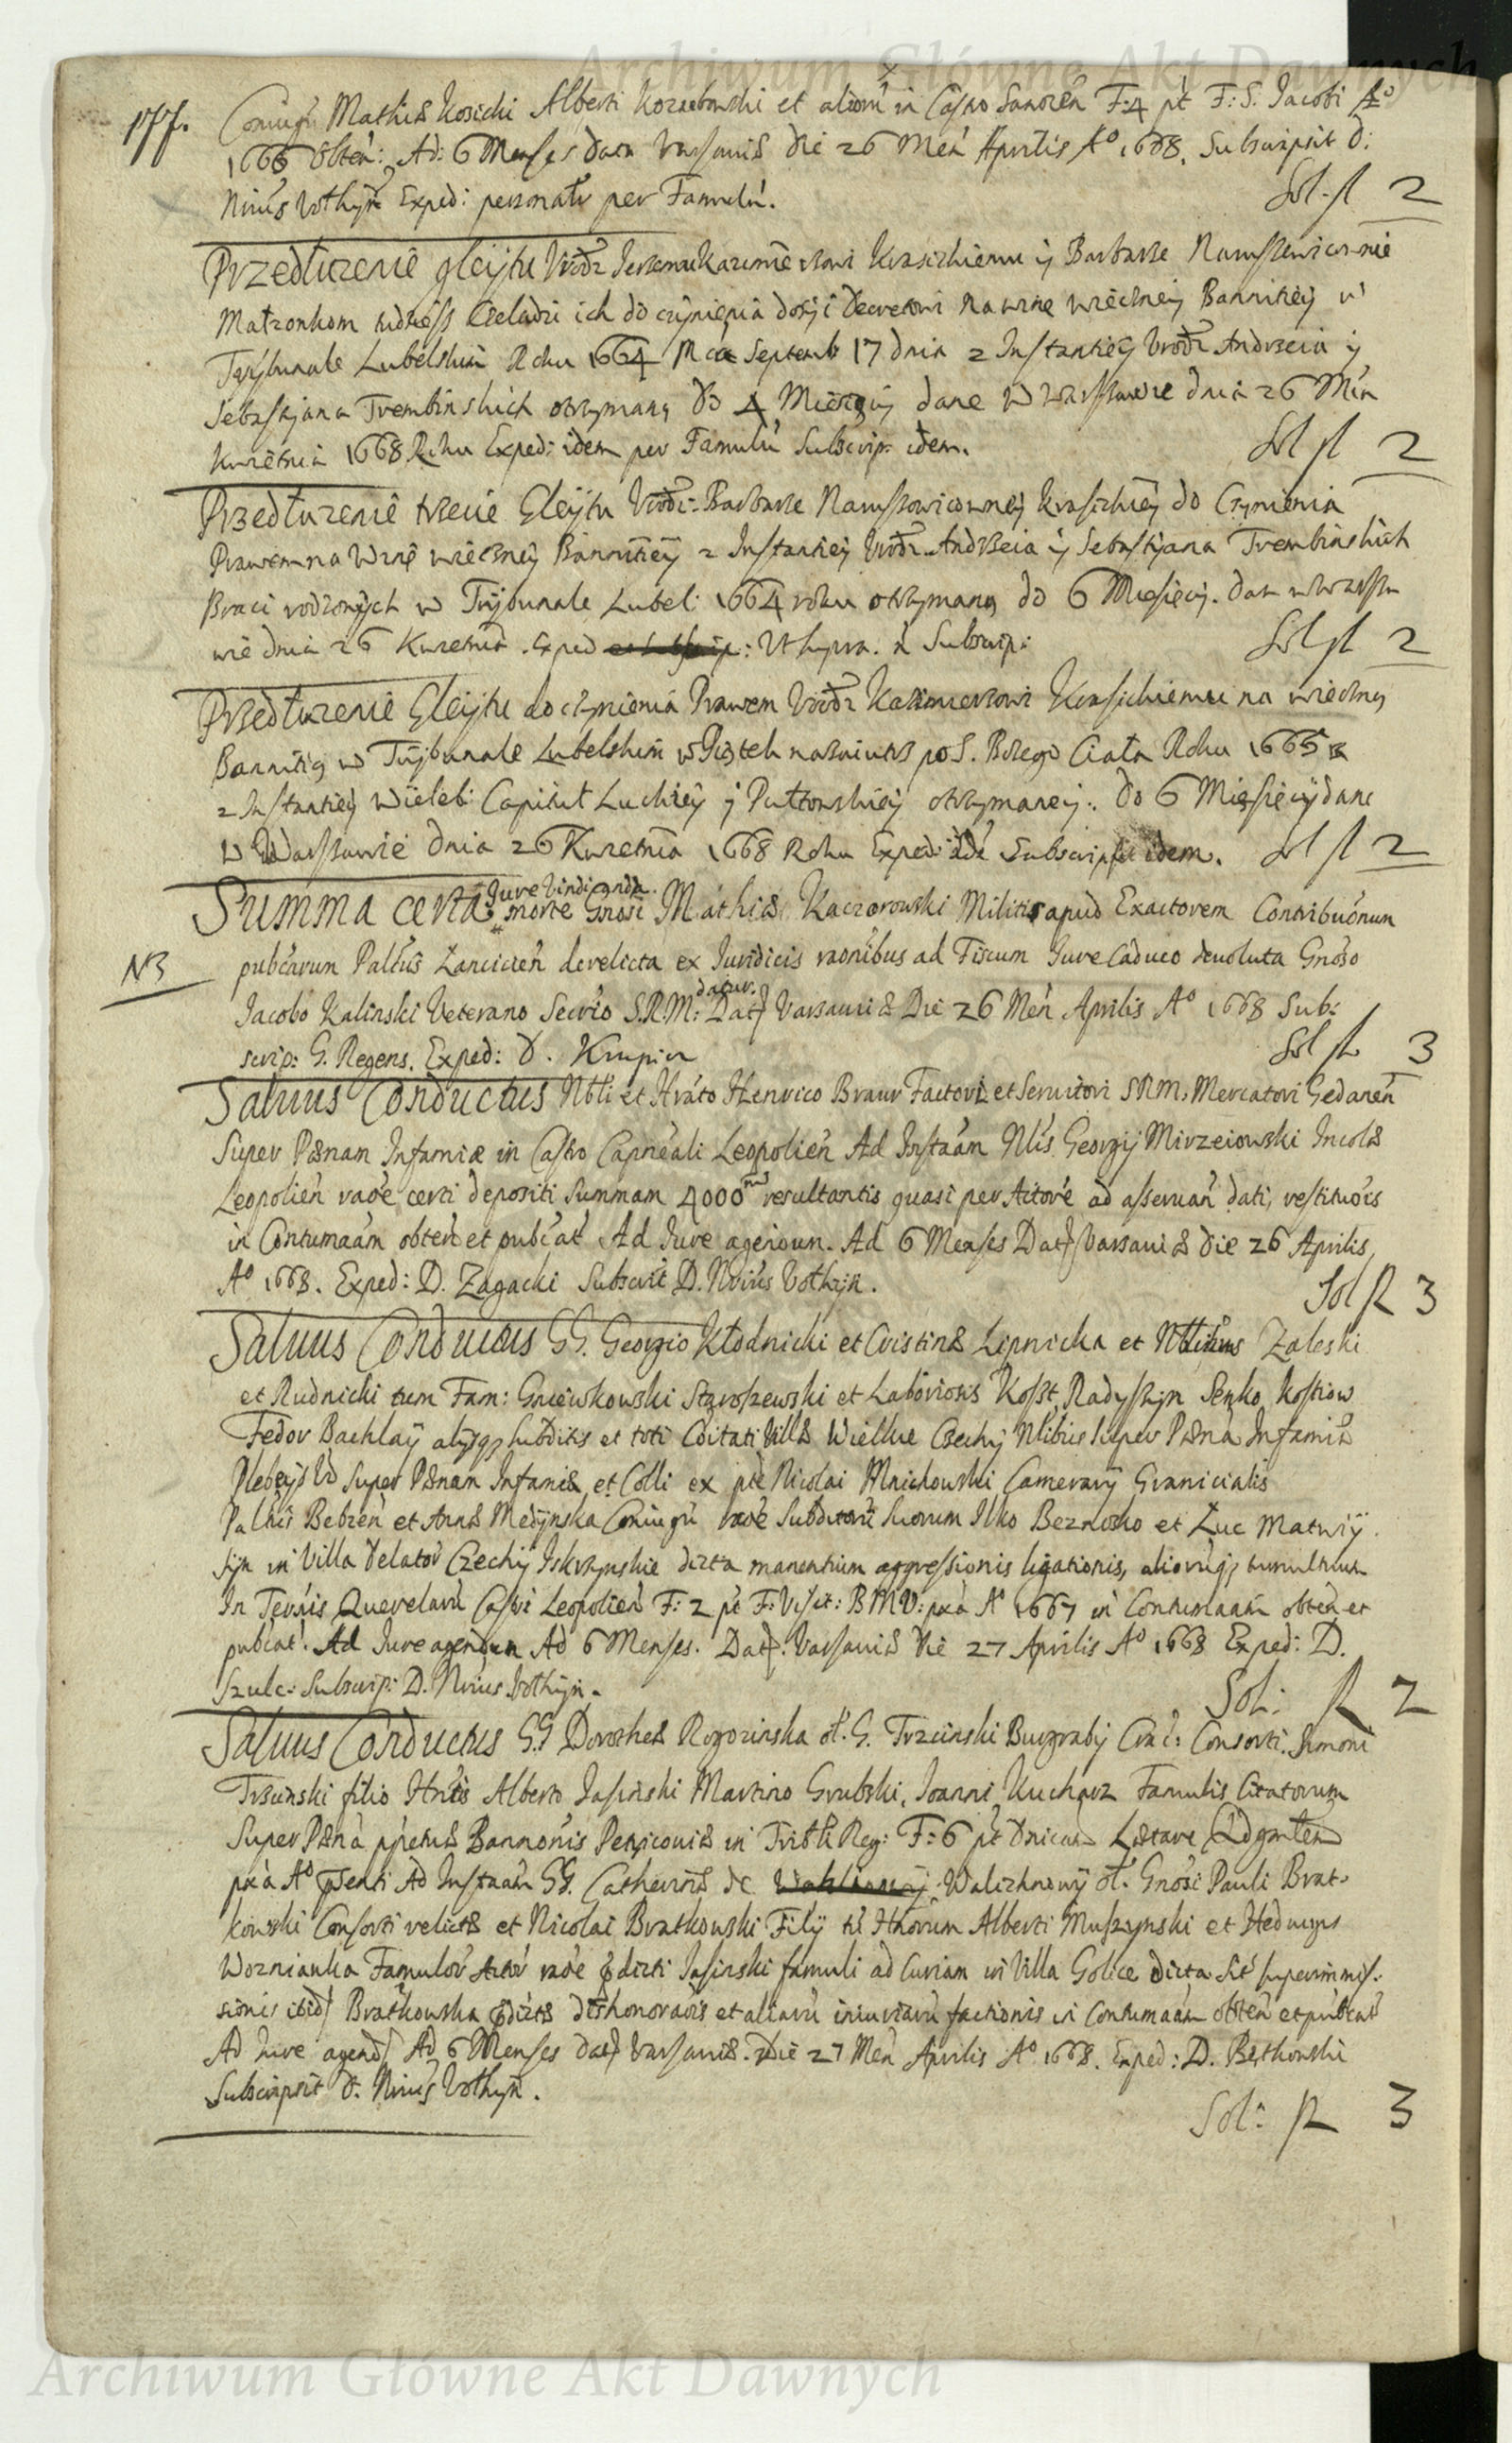 Archiwum Główne Akt Dawnych
177. Coniug: Mathiæ Kosicki Alberti et aliorũ in Castro Sanocẽn F: 4 pt F: S. Jacobi Aº
1666 obten: Ad: 6 Menses data Varsaviæ die 26 Men Aprilis Aº 1668. Subscripsit D:
Nrius Vothyn Exped: personalr per Famulũ.
Sol. fl 2
Przedłuzenie gleytu Vrodz Kazimierzowi Krasickiemu y Barbarze Naruszewiczownie
Małzonkom tudziesz Czeladzi ich do czynienia dosyć Decretowi na winę wieczney Bannitiey w
Trybunale Lubelskim Roku 1664 Mca Septemb 17 dnia z Instantiey Vrodz Andrzeia y
Sebastyana Trembinskich otrzymaną do 4 Miesięcy dane w Warszawie dnia 26 Mca
Kwietnia 1668 Roku Exped: idem per Famulũ Subscrip: idem.
Sol fl 2
Przedłuzenie trzecie Gleytu Vrodz: Barbarze Naruszowicowney Krasickiey do Czynienia
Prawem na Winę wieczney Bannitiey z Instantiey Vrodz Andrzeia y Sebastyana Trembinskich
Braci rodzonych w Trybunale Lubel: 1664 roku otrzymaną do 6 Miesięcy. Dat w Warsza
wie dnia 26 Kwietnia. Exped : Vthypra. d Subscrip:
Sol fl 2
Przedłuzenie Gleytu do czynienia Prawem Vrodz Kazimierzowi Krasickiemu na wieczną
Bannitią w Trybunale Lubelskim w Piątek naznaiutrz po S. Bozego Ciała Roku 1665
z Instantiey Wieleb: Capituł Luckiey y Pułtowskiey otrzymaney. Do 6 Miesięcy dane
w Warszawie dnia 26 Kwietnia 1668 Roku Exped: Subscripsit idem.
Sol fl 2
Jure Vindicanda.
Summa certa morte Gnosi Mathiæ Kaczorowski Militis apud Exactorem Contribuonum
NB publcarum Paltus Lancicien derelicta ex Juridicis raonibus ad Fiscum Jure Caduco devoluta Gnoso
datur.
Jacobo Kalinski Veterano Servio S.R.M: Dat Varsaviæ Die 26 Men Aprilis Aº 1668 Sub:
scrip: G. Regens. Exped: D. Krupin
Sol fl 3
Salvus Conductus Nbli et Hrato Henrico Braur Factori et Servitori SRM. Mercatori Gedanen
Super Pænam Infamiæ in Castro Capneali Leopolien Ad Instaam Nlis Georgij Mirzeiowski Incolæ
Leopolien raoe certi depositi Summam 4000 m resultantis quasi per Actore ad asseruan dati, restituois
in Contumaam obten et publcat Ad Jure agendum. Ad 6 Menses Dat Varsaviæ die 26 Aprilis
Aº 1668. Exped: D. Zagacki Subscrit D. Nrius Vothyn.
Sol fl 3
Salvus Conductus GG. Georgio Kłodnicki et Cristinæ Lipnicka et Nblibus Zaleski
et Rudnicki tum Fam: Gniewkowski Staroszewski et Laboriosis Kost, Radyszyn Senko, Kostiow
Fedor Bachlaij alijsq, subditis et toti Coitati Villæ Wielkie Czechy Nlibus super Pæna Infamiæ
Plebeijs Vo super Pænam Infamiæ et Colli ex pte Nicolai Mnichowski Camerarij Granicialis
Palnis Bełzen et Annæ Medynska Coniugũ raoe Subditorũ suorum Ilko Beznosko et Luc Matwij
syn in Villa delator Czechy Iskrzynskie dicta manentium aggressionis ligationis, aliorũq, tumultuum
In Termis Querelarũ Castri Leopolien F: 2 pt F: Visit: BMV: pxa Aº 1667 in Contumaam obten et
publcat. Ad Jure agendum Ad 6 Menses. Dat. Varsaviæ Die 27 Aprilis Aº 1668 Exped: D.
Szulc. Subscrip: D. Nrius Vothyn.
Sol: fl 2
Salvus Conductus GG Dorotheæ Rogozinska ol. G. Trzcinski Burgrabij Crac: Consorti. Simoni
Trzcinski filio Hntis Alberto Jasinski Martino Grabski, Joanni Kucharz Famulis Citatorum
Super Pæna ppetuæ Bannonis Petricoviæ in Tribli Reg: F: 6 pt Dnicam Lætare
pxa Aº psenti Ad Instaam GG. Catherinæ de Walichnowy ol. Gnosi Pauli Brat-
kowski Consorti relictæ et Nicolai Bratkowski Filij Alberti Muszynski et Hedwigis
Woznianka Famulor Actor raoe pdicti Jasinski famuli ad Curiam in Villa Golice dicta Sit superimmis-
sionis ibid Bratkowska pdictæ dishonoraois et aliarũ iniuriarũ factionis in Contumaam obten et publcat
Ad Jure agend Ad 6 Menses Dat Varsaviæ. Die 27 Men Aprilis Aº 1668. Exped: D. Bętkowski
Subscripsit D. Nrius Vothyn.
Sol: fl 3
Archiwum Główne Akt Dawnych